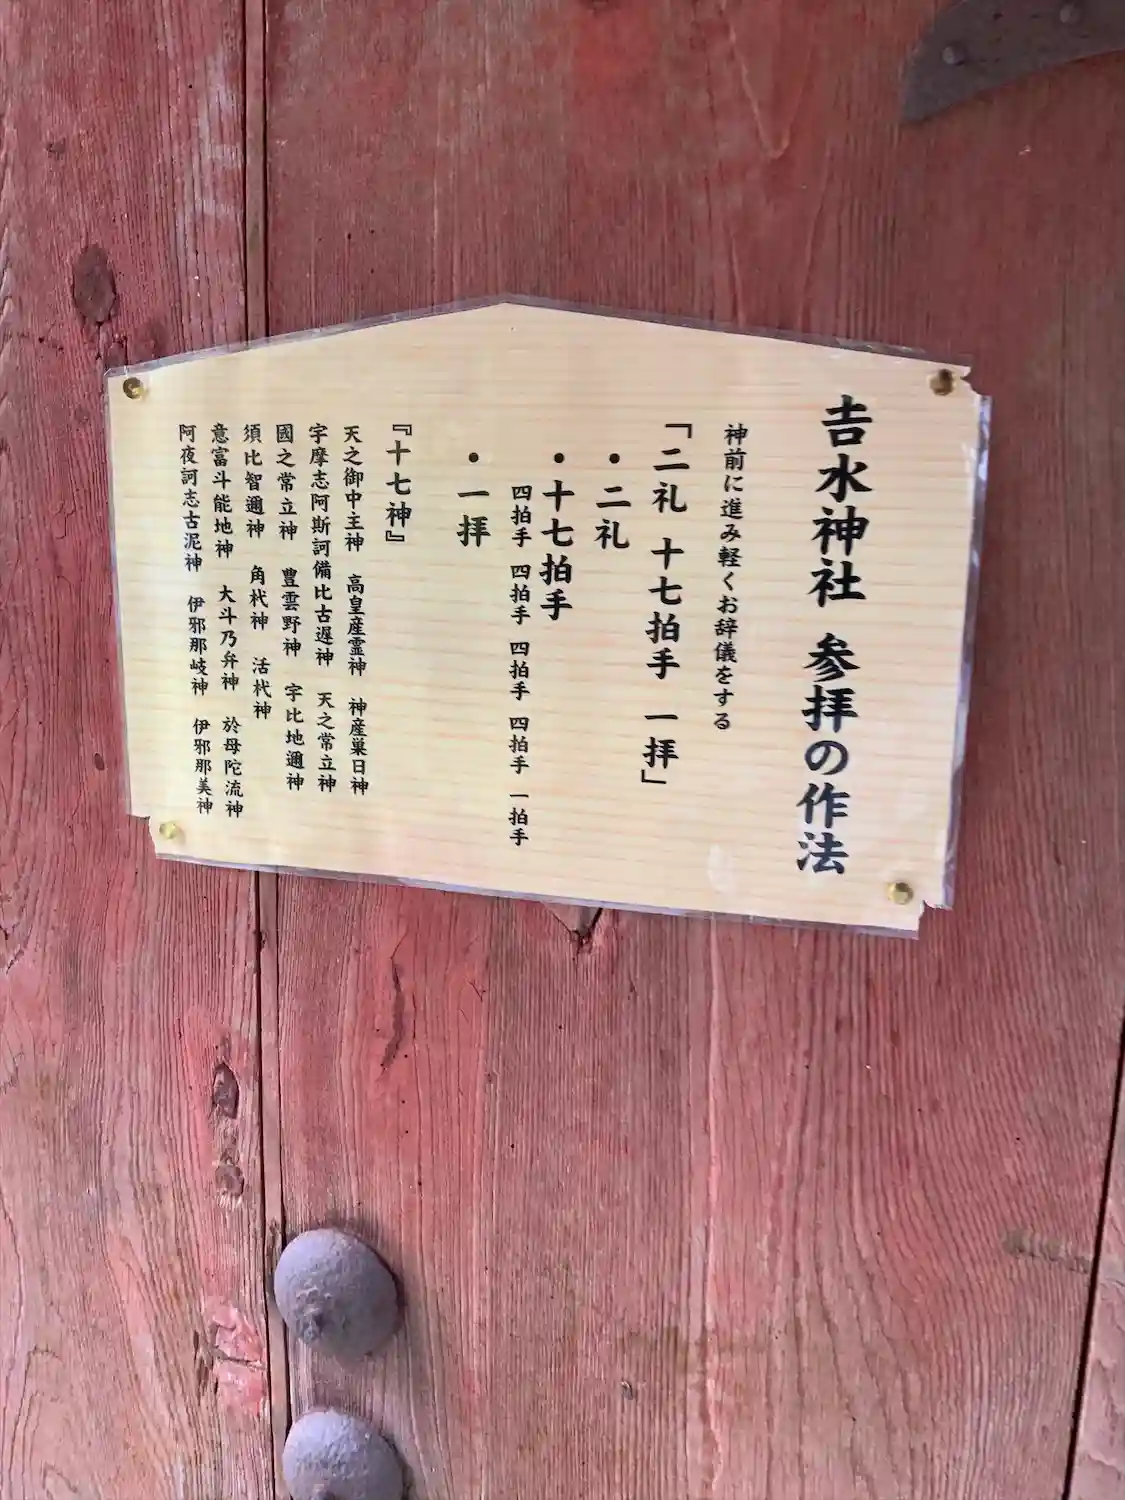 𠮷水神社 参拝の作法
神前に進み軽くお辞儀をする
「二礼 十七拍手 一拝」
・二礼
・十七拍手
四拍手 四拍手 四拍手 四拍手 一拍手
・一拝
『十七神』
天之御中主神 高皇産霊神 神産巣日神
宇摩志阿斯訶備比古遅神 天之常立神
國之常立神 豊雲野神 宇比地邇神
須比智邇神 角杙神 活杙神
意富斗能地神 大斗乃弁神 於母陀流神
阿夜訶志古泥神 伊邪那岐神 伊邪那美神